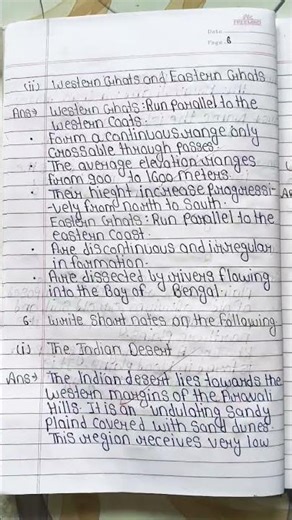 Date
Page 6
(ii) Western Ghats and Eastern Ghats.
Ans→ Western Ghats: Run parallel to the
western Coats.
• Form a continuous range only
crossable through passes
• The average elevation ranges
from 900 to 1600 meters.
• Their hieght increase progressi-
-vely from north to South.
Eastern Ghats: Run parallel to the
eastern coast.
• Are discontinuous and irregular
in formation.
• Are dissected by rivers flowing
into the Bay of Bengal.
6. Write short notes on the following
(i) The Indian Desert.
Ans→ The Indian desert lies towards the
western margins of the Aravali
Hills. It is an undulating sandy
plaind covered with sand dunes.
This region receives very low